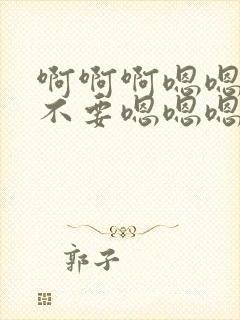 啊啊啊嗯嗯
不要嗯嗯嗯
郭子